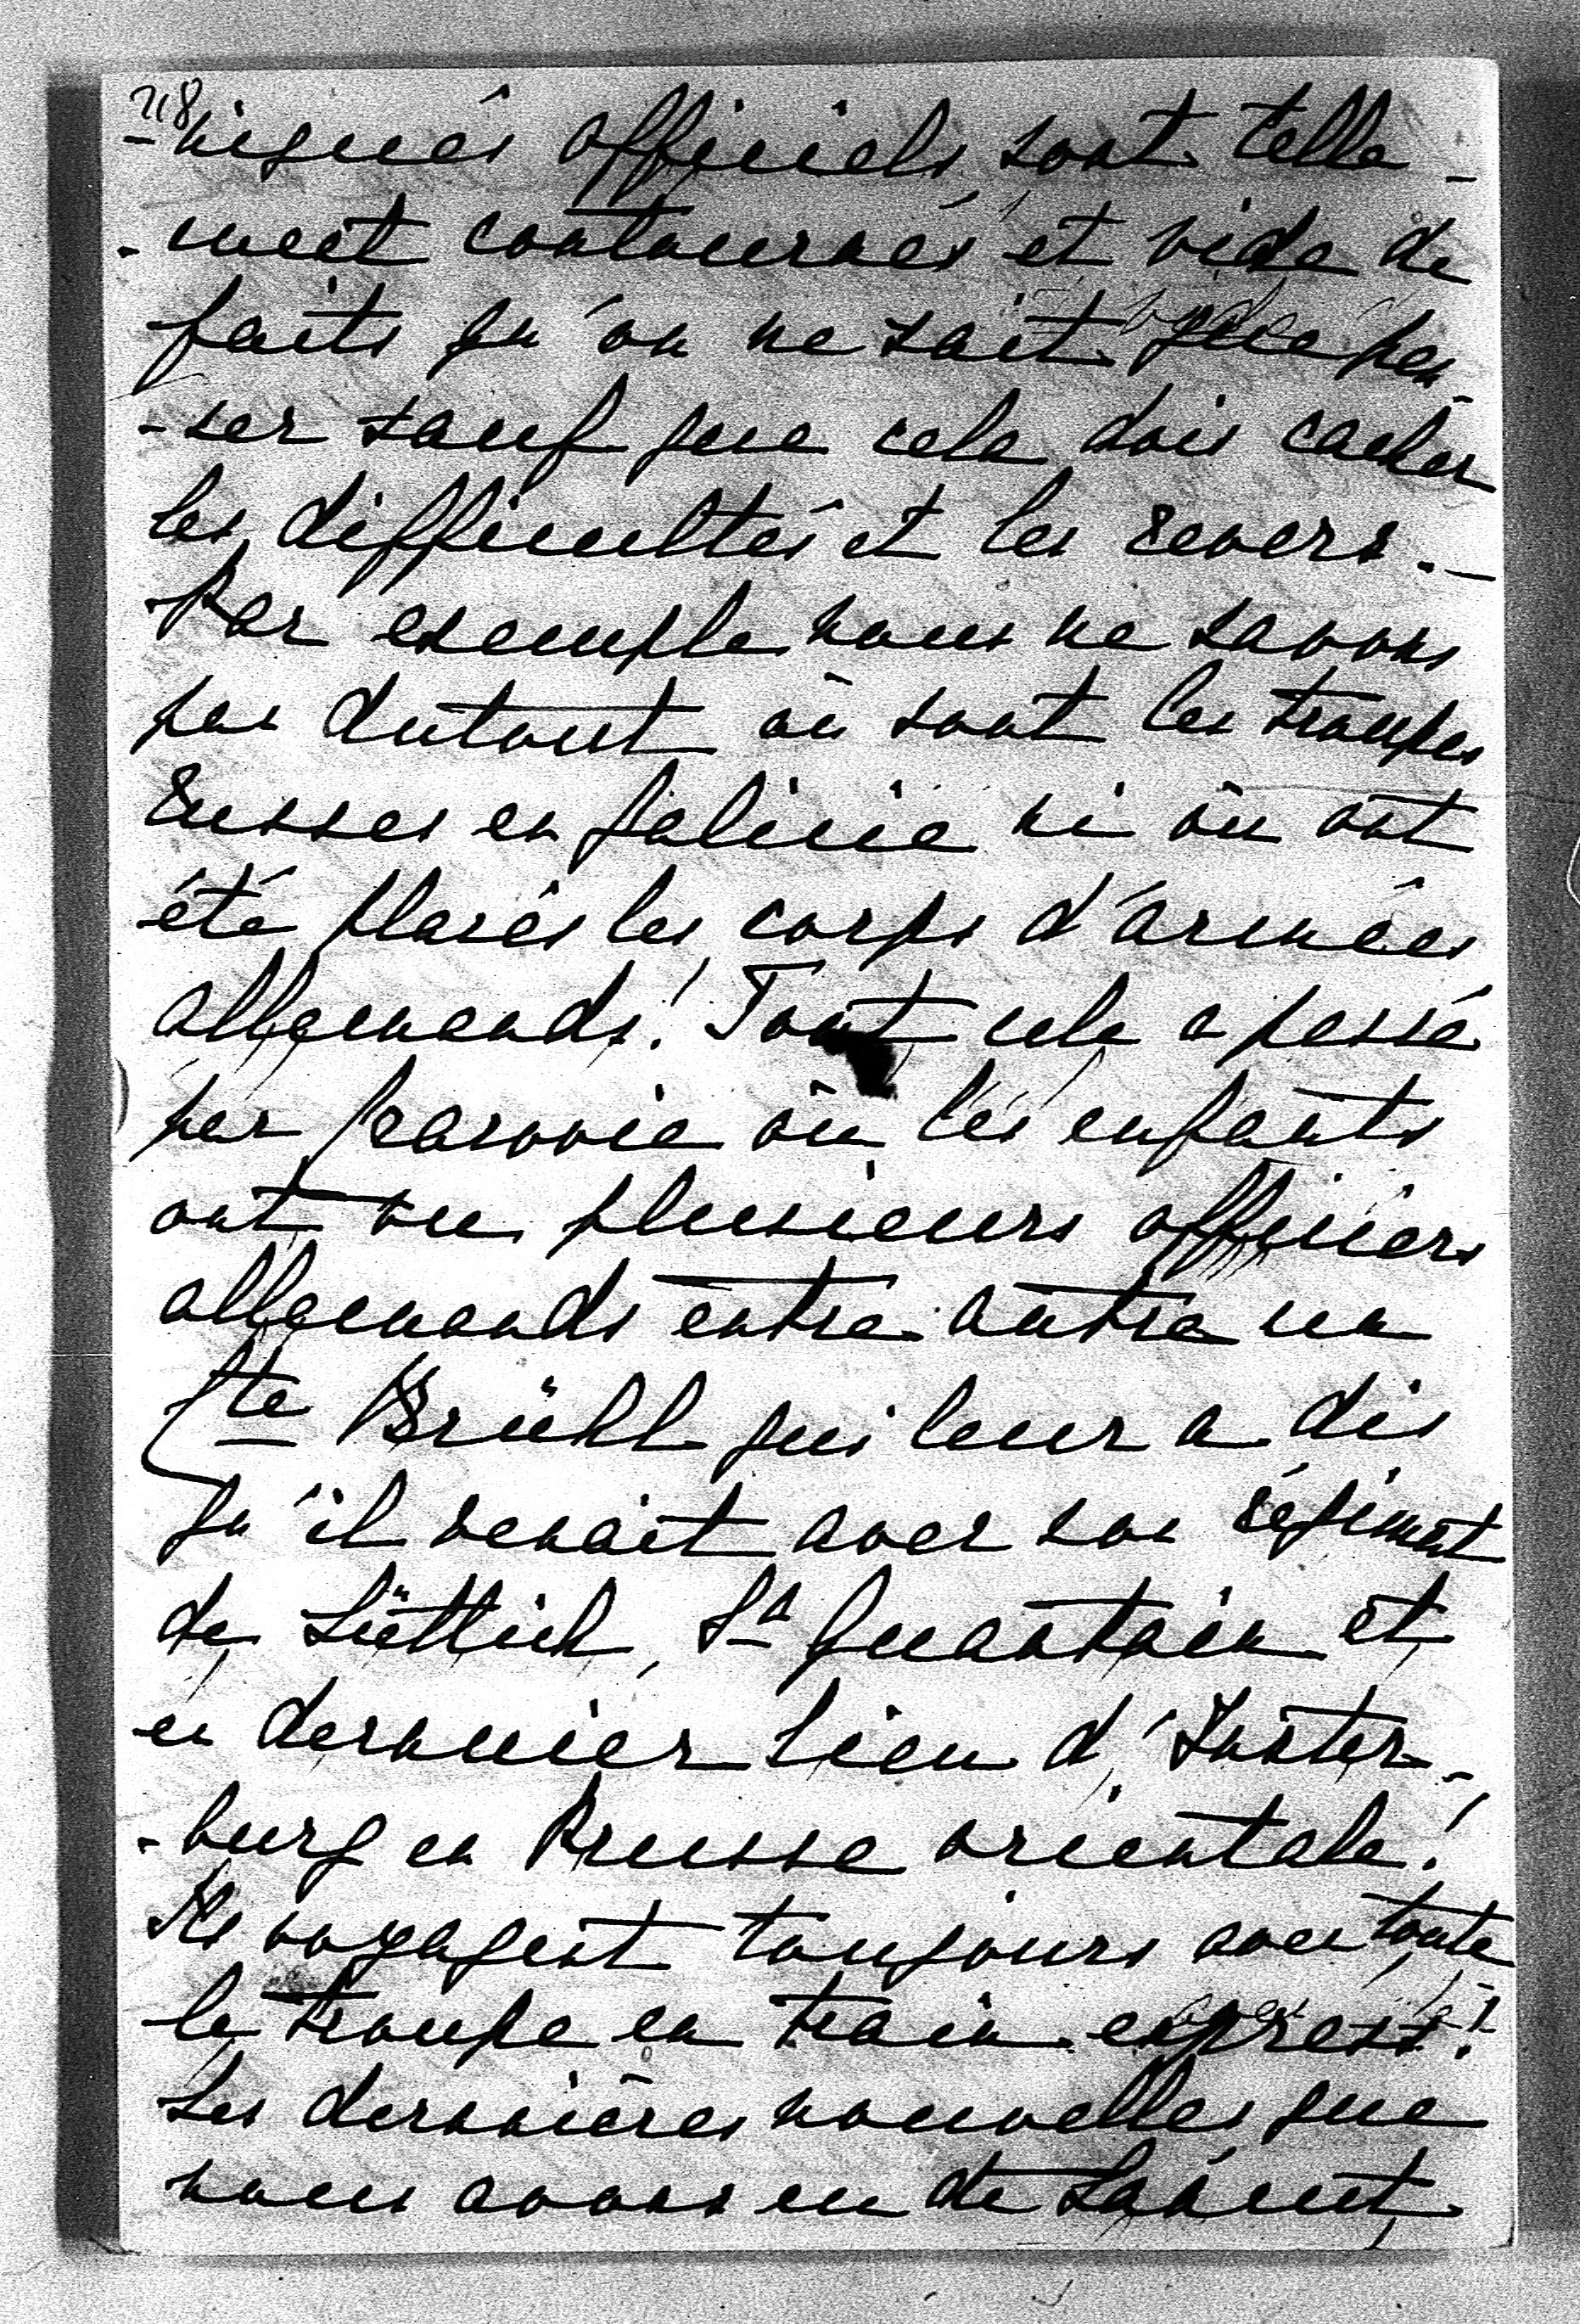 218
-niqués officiels sont telle-
-ment contournés et vide de
faits qu'on ne sait que pen-
-ser sauf que cela dois cacher
les difficultés et les revers.-
Par exemple nous ne savons
pas dutout où sont les troupes
russes en Galicie ni où ont
été placés les corps d'armées
allemands! Tout cela a passé
par Cracovie où les enfants
ont vu plusieurs officiers
allemands entre autre un
Cte Brühl qui leur a dis
qu'il venait avec son régiment
de Lüttich, St Quantain et
en dernier lieu d'Inster-
-burg en Prusse orientale!
Ils voyagent toujours avec toute
la troupe en train express!
Les dernières nouvelles que
nous avons eu de